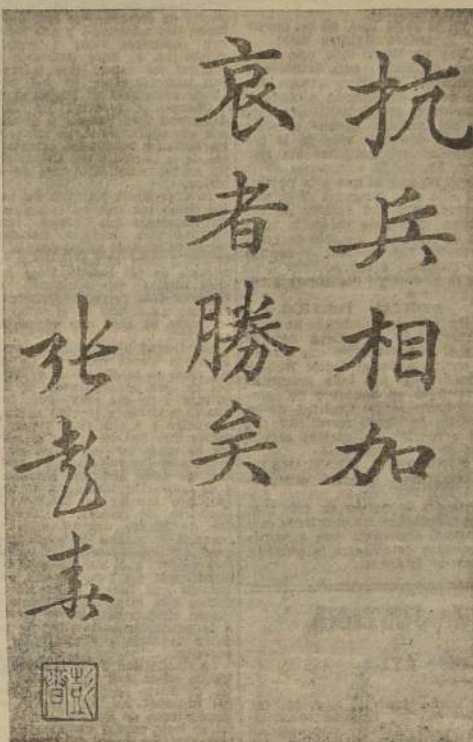 抗兵相加
哀者勝矣
张彭春
彭春